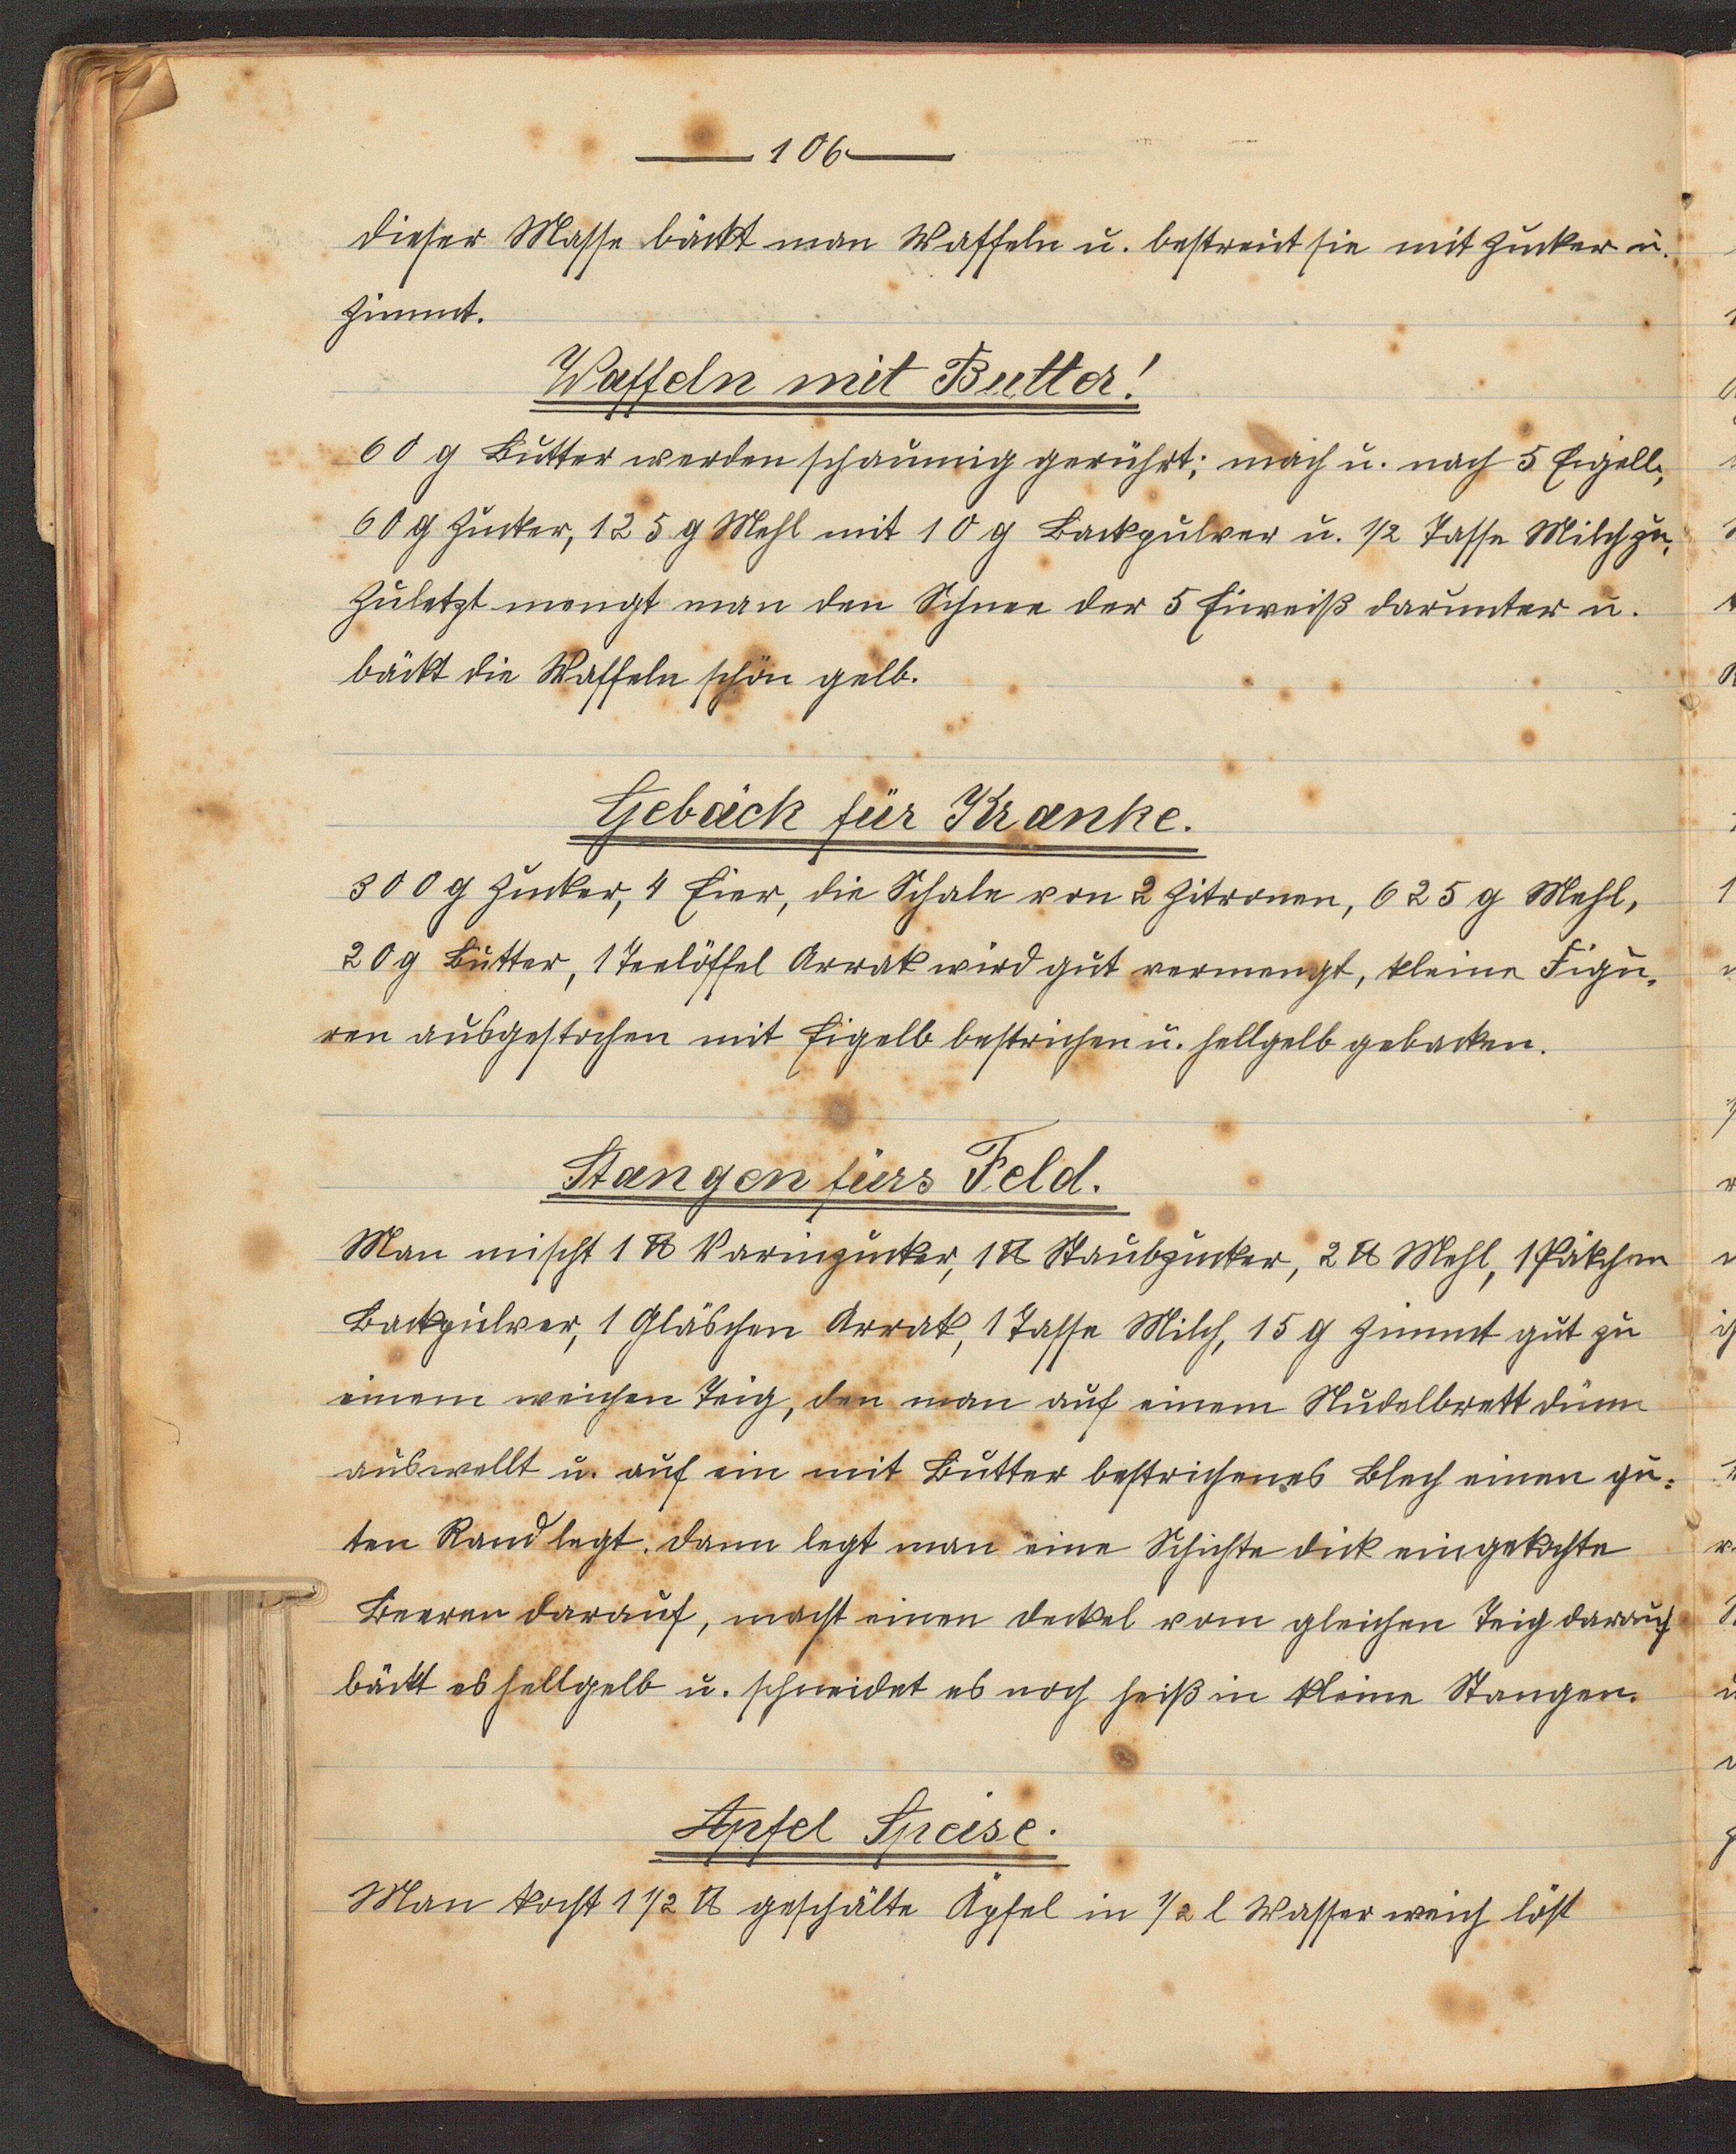 106
dieser Masse bäckt man Waffeln u. bestreut sie mit Zucker u.
Zimmt.
Waffeln mit Butter!
60 g Butter werden schaumig gerührt; nach u. nach 5 Eigelb,
60 g Zucker, 125 g Mehl mit 10 g Backpulver u. 1/2 Tasse Milch zu,
Zuletzt mengt man den Schnee der 5 Eiweiß darunter u.
bäckt die Waffeln schön gelb.
Gebäck für Kranke.
300 g Zucker, 4 Eier, die Schale von 2 Zitronen, 625 g Mehl,
20 g Butter, 1 Teelöffel Arrak wird gut vermengt, kleine Figu-
ren ausgestochen mit Eigelb bestrichen u. hellgelb gebacken.
Stangen fürs Feld.
Man mischt 1 ℔ Farinzucker, 1 ℔ Staubzucker, 2 ℔ Mehl, 1 Päkchen
Backpulver, 1 Gläschen Arrak, 1 Tasse Milch, 15 g Zimmt gut zu
einem weichen Teig, den man auf einem Nudelbrett dünn
auswellt u. auf ein mit Butter bestrichenes Blech einen gu-
ten Rand legt. Dann legt man eine Schichte dick eingekochte
Beeren darauf, macht einen Deckel vom gleichen Teig darauf
bäckt es hellgelb u. schneidet es noch heiß in kleine Stangen.
Apfel Speise.
Man kocht 1 1/2 ℔ geschälte Äpfel in 1/2 l Wasser weich löst